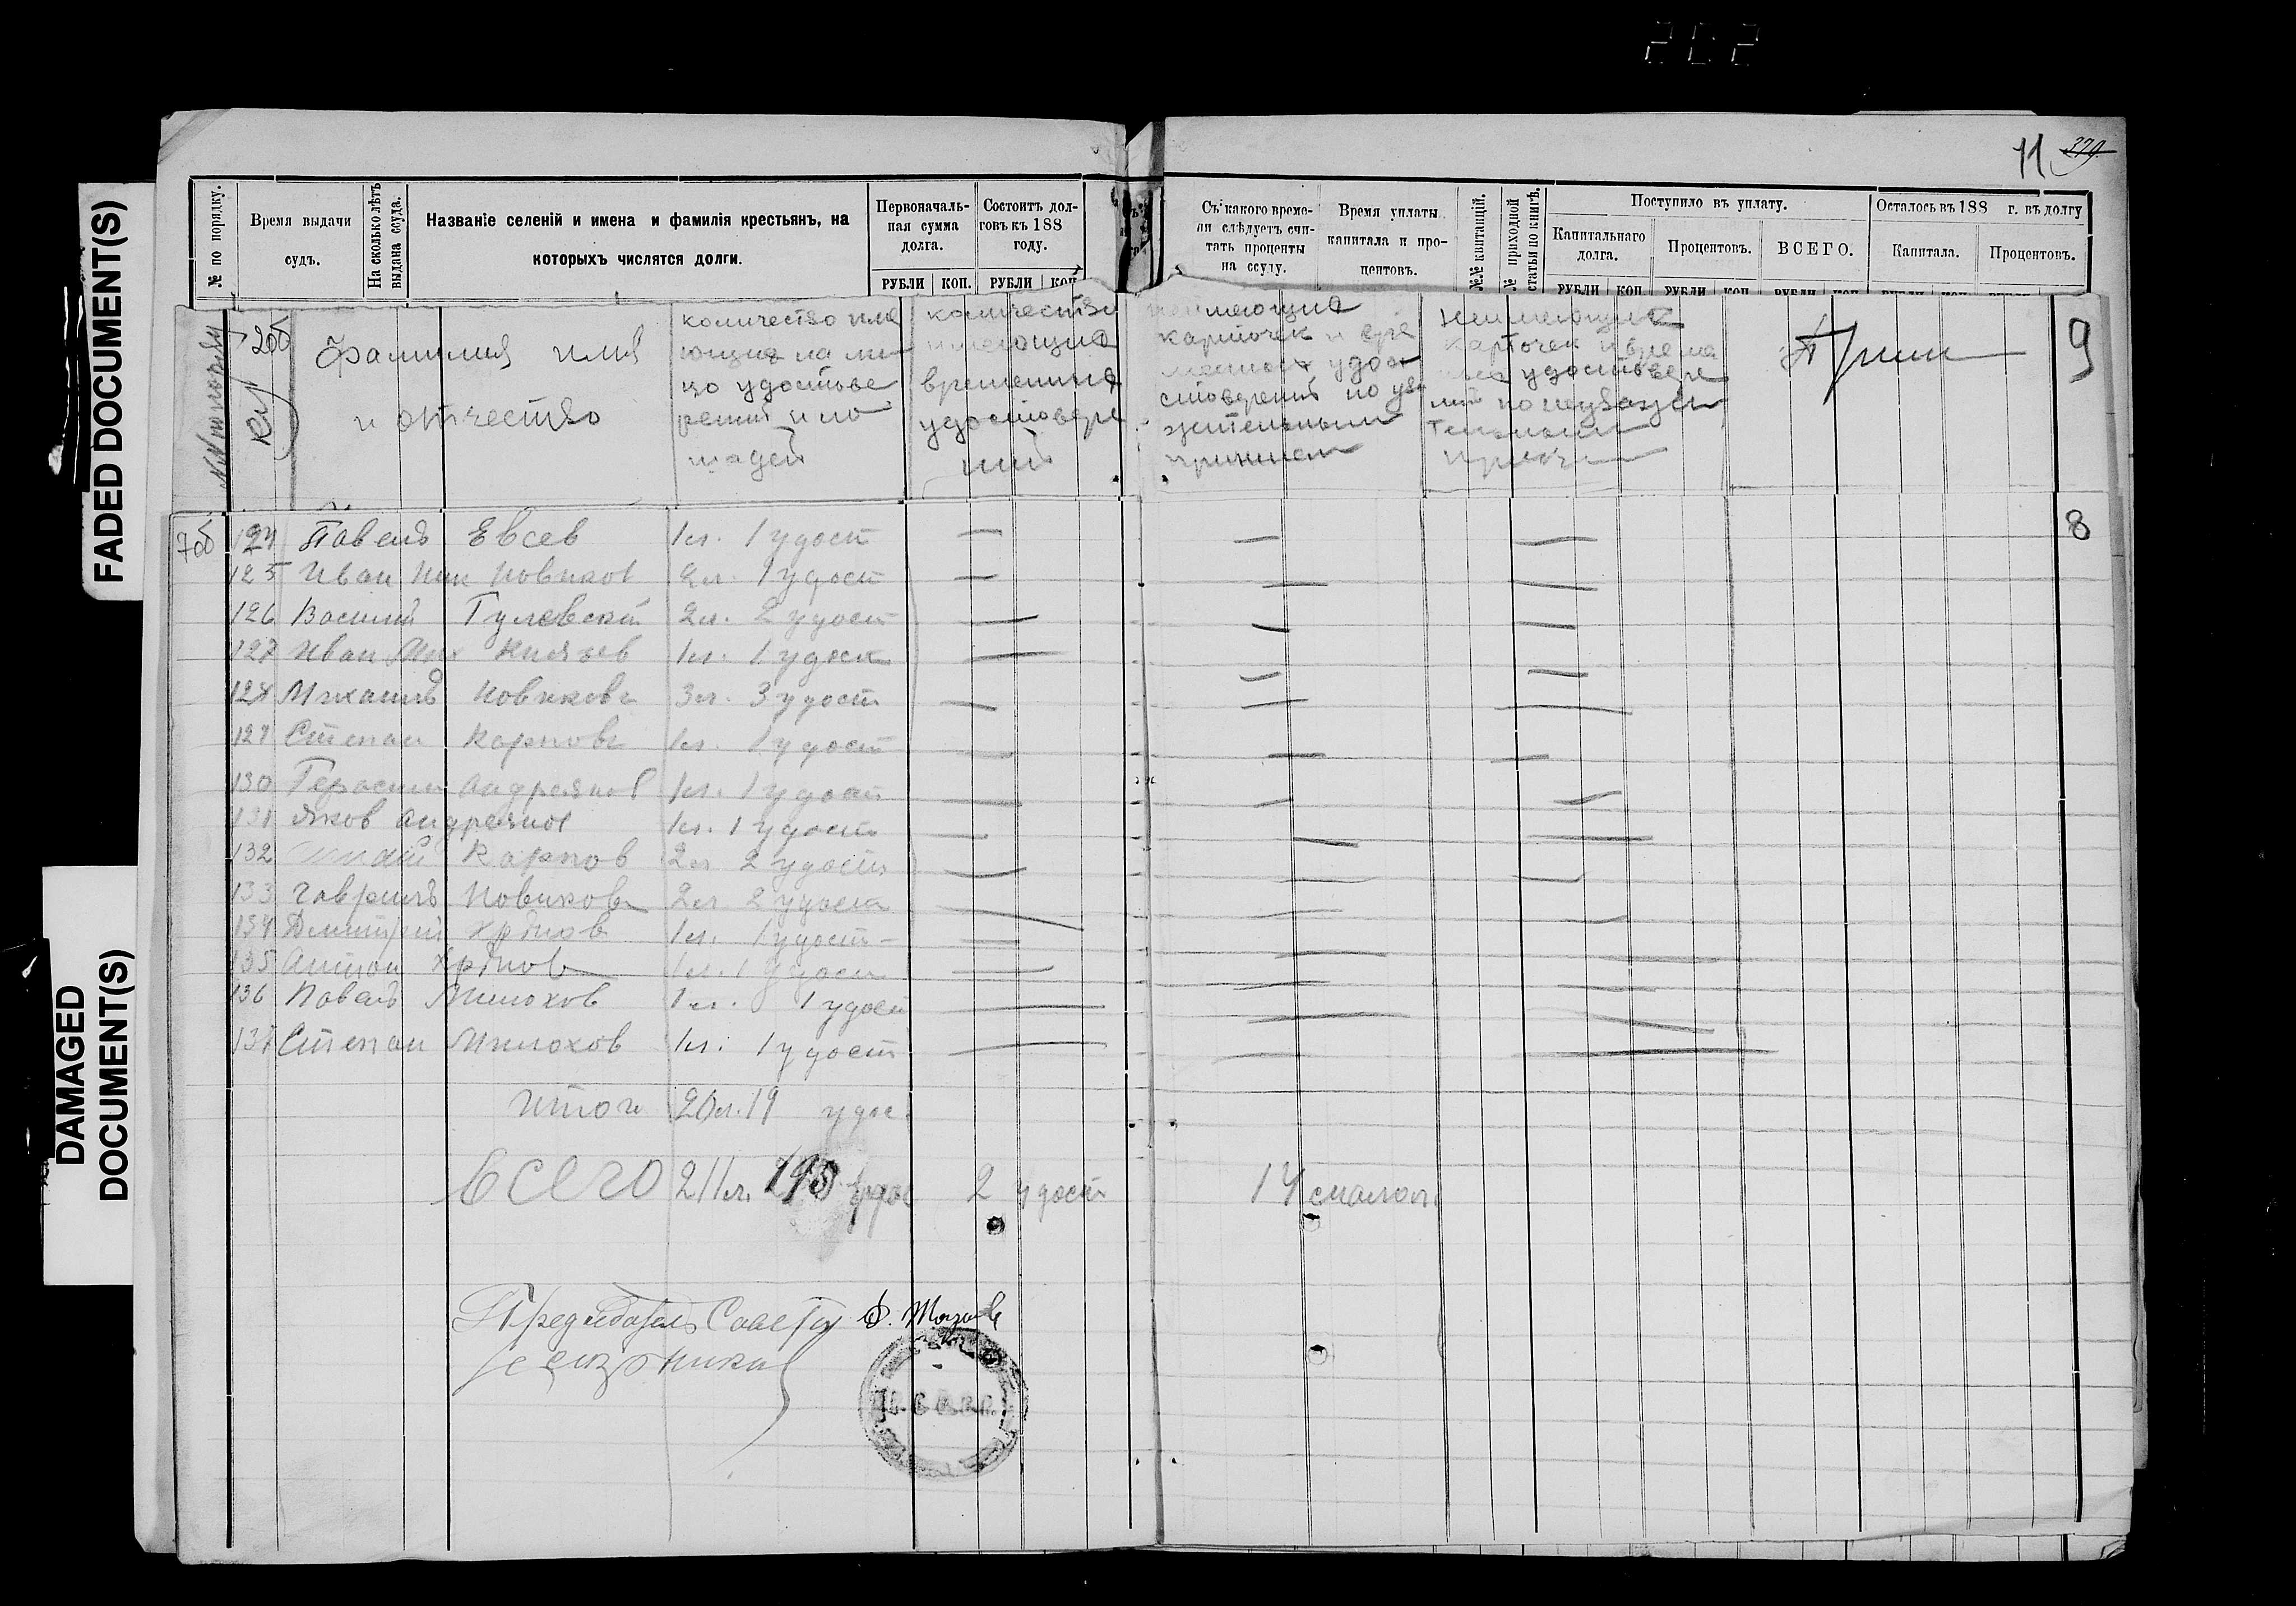 202
11 379
FADED DOCUMENT(S)
DAMAGED
DOCUMENT(S)
№ по порядку.
Время выдачи
судъ.
На сколько лѣтъ
выдана ссуда.
Названіе селеній и имена и фамилія крестьянъ, на
которыхъ числятся долги.
Первоначаль-
ная сумма
долга.
РУБЛИ КОП.
Состоитъ дол-
говъ къ 188
году.
РУБЛИ КОП
Съ какого време-
ни слѣдуетъ счи-
тать проценты
на ссуду.
Время уплаты
капитала и про-
центовъ.
№№ квитанцій.
№ приходной
статьи по книгѣ.
Поступило въ уплату.
Капитальнаго
долга.
Процентовъ.
ВСЕГО.
РУБЛИ КОП РУБЛИ КОП РУБЛИ КОП
Осталось въ 188 г. въ долгу
Капитала.
Процентовъ.
Фамилия имя
и отчество
количество име
ющия на ли
цо удостове
рений и ло
шадей
количество
имеющия
временныя
удостовере
ний
неимеющия
карточек и вре
менных удос
товерений по ува
жительным
причинам
неимеющия
карточек и време
удостовере
ний по неуважи
тельным
9
7об 124 Павелъ Евсев 1л. 1 удост 8
125 Иван Ник Новиков 2л. 1 удост
126 Василий Гулевский 2л. 2 удост
127 Иван Мих Князев 1л. 1 удост
128 Михаилъ Новиковъ 3л. 3 удост
129 Степан Карповъ 1л. 1 удост
130 Герасим Андреянов 1л. 1 удост
131 Яков Андреянов 1л. 1 удост
132 Карпов 2л 2 удость
133 Гаврилъ Новиковъ 2л 2 удоста
134 Дмитрий Хрїпов 1л. 1 удост
135 Антон Хрїпов 1л. 1 удост
136 Павелъ Милохов 1л. 1 удост
137 Степан Милохов 1л. 1 удост
итого 20л. 19 удос.
Всего 211л. 193 удос 2 удост 14 смалол.
Председатель Совета